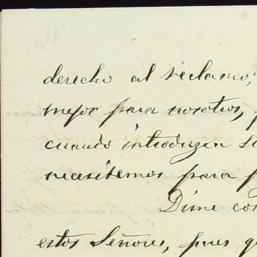 derecho al reclamo;
mejor para nosotros,
cuando introduzca
necesitemos para
Dime
estos Señores, pues